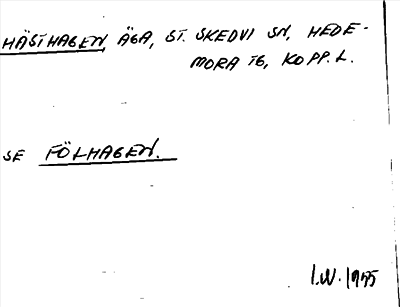 HÄSTHAGEN, ÄGA, ST. SKEDVI SN, HEDE-
MORA TG, KOPP. L.
SE FÖLHAGEN.
I.W. 1955